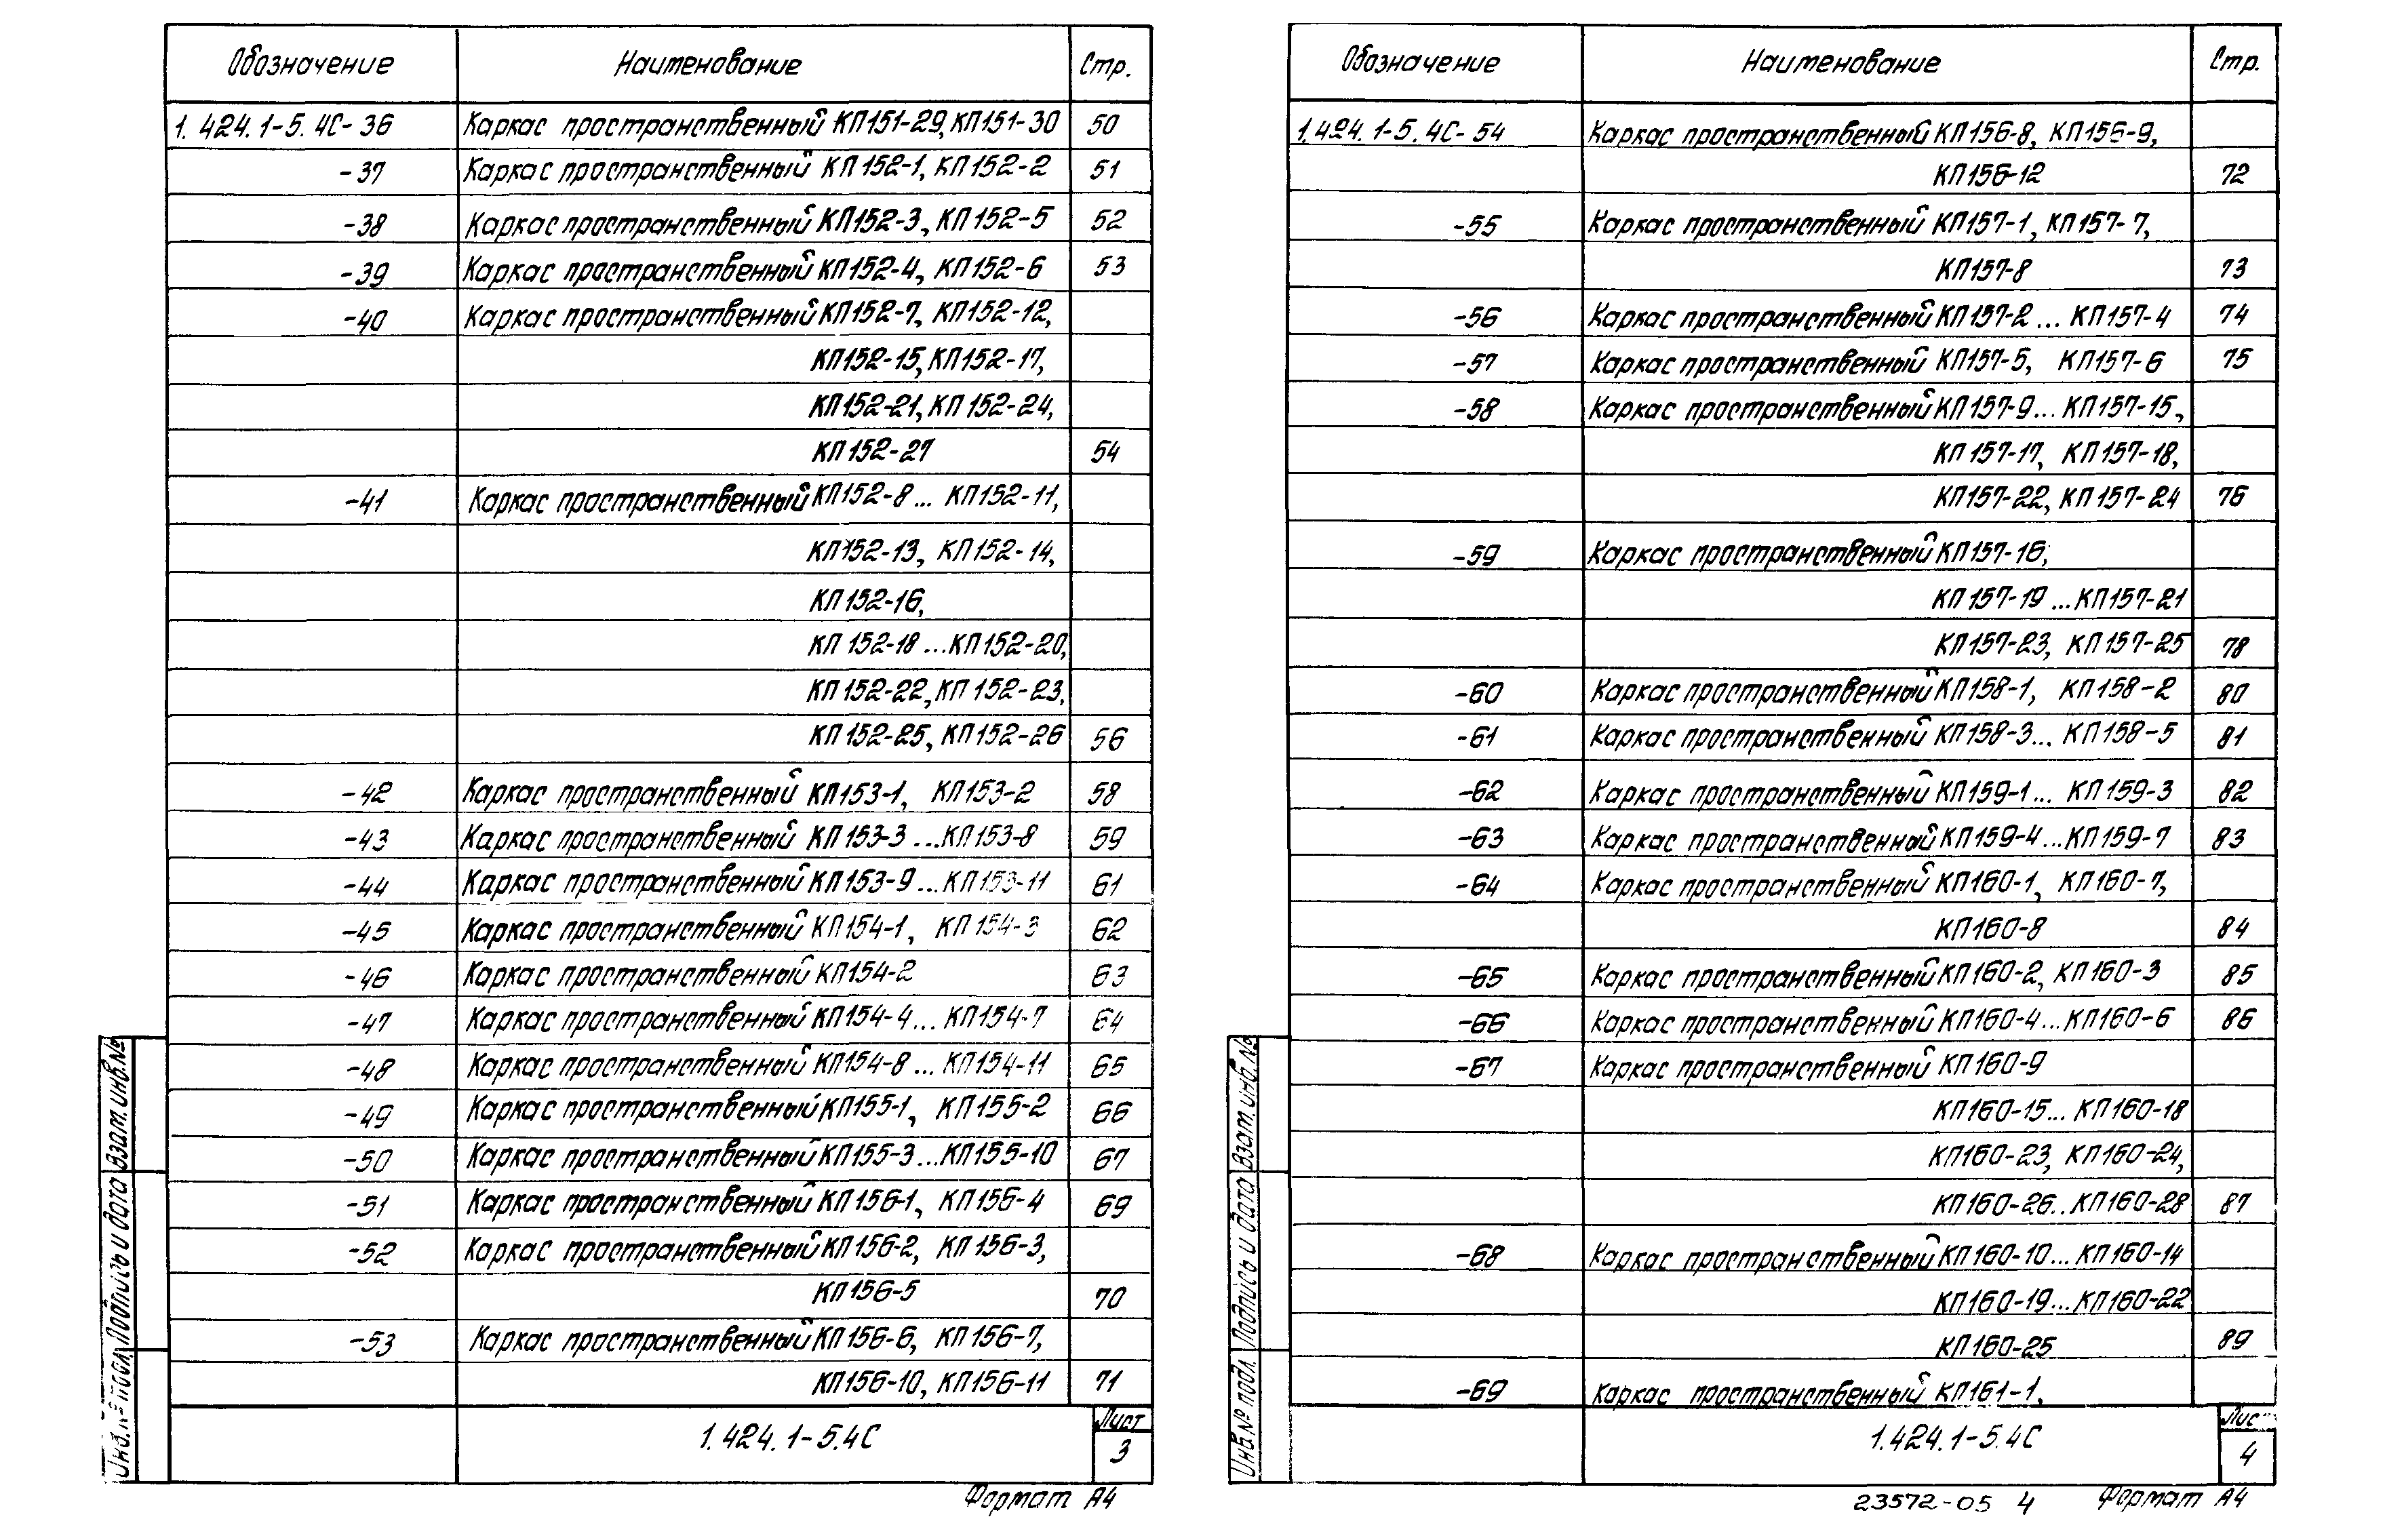 Обозначение Наименование Стр.
1.424.1-5.4С-36 Каркас пространственный КП151-29, КП151-30 50
-37 Каркас пространственный КП152-1, КП152-2 51
-38 Каркас пространственный КП152-3, КП152-5 52
-39 Каркас пространственный КП152-4, КП152-6 53
-40 Каркас пространственный КП152-7, КП152-12,
КП152-15, КП152-17,
КП152-21, КП152-24,
КП152-27 54
-41 Каркас пространственный КП152-8... КП152-11,
КП152-13, КП152-14,
КП152-16,
КП152-18...КП152-20,
КП152-22, КП152-23,
КП152-25, КП152-26 56
-42 Каркас пространственный КП153-1, КП153-2 58
-43 Каркас пространственный КП153-3...КП153-8 59
-44 Каркас пространственный КП153-9...КП153-11 61
-45 Каркас пространственный КП154-1, КП154-3 62
-46 Каркас пространственный КП154-2 63
-47 Каркас пространственный КП154-4... КП154-7 64
-48 Каркас пространственный КП154-8... КП154-11 65
-49 Каркас пространственный КП155-1, КП155-2 66
-50 Каркас пространственный КП155-3...КП155-10 67
-51 Каркас пространственный КП156-1, КП156-4 69
-52 Каркас пространственный КП156-2, КП156-3,
КП156-5 70
-53 Каркас пространственный КП156-6, КП156-7,
КП156-10, КП156-11 71
1.424.1-5.4С
Лист
3
Инв.№ подл. Подпись и дата Взам.инв.№
Формат А4
Обозначение Наименование Стр.
1.424.1-5.4С-54 Каркас пространственный КП156-8, КП156-9,
КП156-12 72
-55 Каркас пространственный КП157-1, КП157-7,
КП157-8 73
-56 Каркас пространственный КП157-2... КП157-4 74
-57 Каркас пространственный КП157-5, КП157-6 75
-58 Каркас пространственный КП157-9... КП157-15,
КП157-17, КП157-18,
КП157-22, КП157-24 76
-59 Каркас пространственный КП157-16,
КП157-19...КП157-21
КП157-23, КП157-25 78
-60 Каркас пространственный КП158-1, КП158-2 80
-61 Каркас пространственный КП158-3... КП158-5 81
-62 Каркас пространственный КП159-1... КП159-3 82
-63 Каркас пространственный КП159-4...КП159-7 83
-64 Каркас пространственный КП160-1, КП160-7,
КП160-8 84
-65 Каркас пространственный КП160-2, КП160-3 85
-66 Каркас пространственный КП160-4...КП160-6 86
-67 Каркас пространственный КП160-9
КП160-15... КП160-18
КП160-23, КП160-24,
КП160-26..КП160-28 87
-68 Каркас пространственный КП160-10... КП160-14
КП160-19...КП160-22
КП160-25 89
-69 Каркас пространственный КП161-1,
1.424.1-5.4С
Лис
4
Инв.№ подл. Подпись и дата Взам.инв.№
23572-05 4 Формат А4